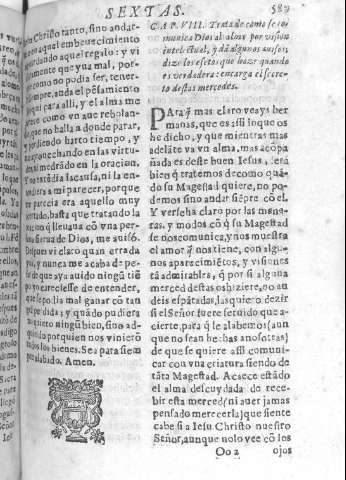 SEXTAS.
589
jeſu Chriſto tanto, ſino andar-
en aquel embeuecimiento
ardando aquel regalo: y vi
mente que yua mal, por-
como no podia ſer, tener-
iempre, anda el péſamiento
aqui para alli, y el alma me
ece como vn aue reuolan-
que no halla a donde parar,
perdiendo harto tiempo, y
uechando en las virtu-
medrádo en la oracion.
no entédia la cauſa, ni la en-
a mi parecer, porque
parecia era aquello muy
do, haſta que tratando la
ion q̃ lleuaua cõ vna per-
ſierua de Dios, me auiſó.
pues vi claro quan errada
y nunca me acaba de pe-
de que aya auido ningũ tiẽ
yo careciesſe de entender,
ſe podia mal ganar cõ tan
perdida; y quãdo pudiera
quiero ningũ bien, ſino ad-
do por quien nos vinierõ
todos los bienes. Sea para ſiem
alabado. Amen.
CAP. VIII. Trata de como ſe co-
munica Dios al alma por viſion
intelectual, y dá algunos auiſos;
dize los efetos que haze quando
es verdadera: encarga el ſecre-
to deſtas mercedes.
PAra q̃ mas claro veays her
manas, que es aſſi loque os
he dicho, y que mientras mas
adelãte va vn alma, mas acopa
ñada es deſte buen Ieſus, ſerá
bien q̃ tratemos de como quã-
do ſu Mageſtad quiere, no po-
demos ſino andar ſiẽpre cõ el.
Y verſeha claro por las mane-
ras, y modos cõ q̃ ſu Mageſtad
ſe nos comunica, y nos mueſtra
el amor q̃ nos tiene, con algu-
nos aparecimiẽtos, y viſiones
tá admirables, q̃ por ſi alguna
merced deſtas os hiziere, no an
deis eſpãtadas, las quiero dezir
ſi el Señor fuere ſeruido que a-
cierte, para q̃ le alabemos (aun
que no ſean hechas a noſotras)
de que ſe quiere aſſi comuni-
car con vna criatura ſiendo de
tãta Mageſtad. Acaece eſtãdo
el alma deſcuydada de rece-
bir eſta merced (ni auer jamas
penſado merecerla) que ſiente
cabe ſi a Ieſu Chriſto nueſtro
Señor, aunque no lo vee cõ los
Oo 2
ojos